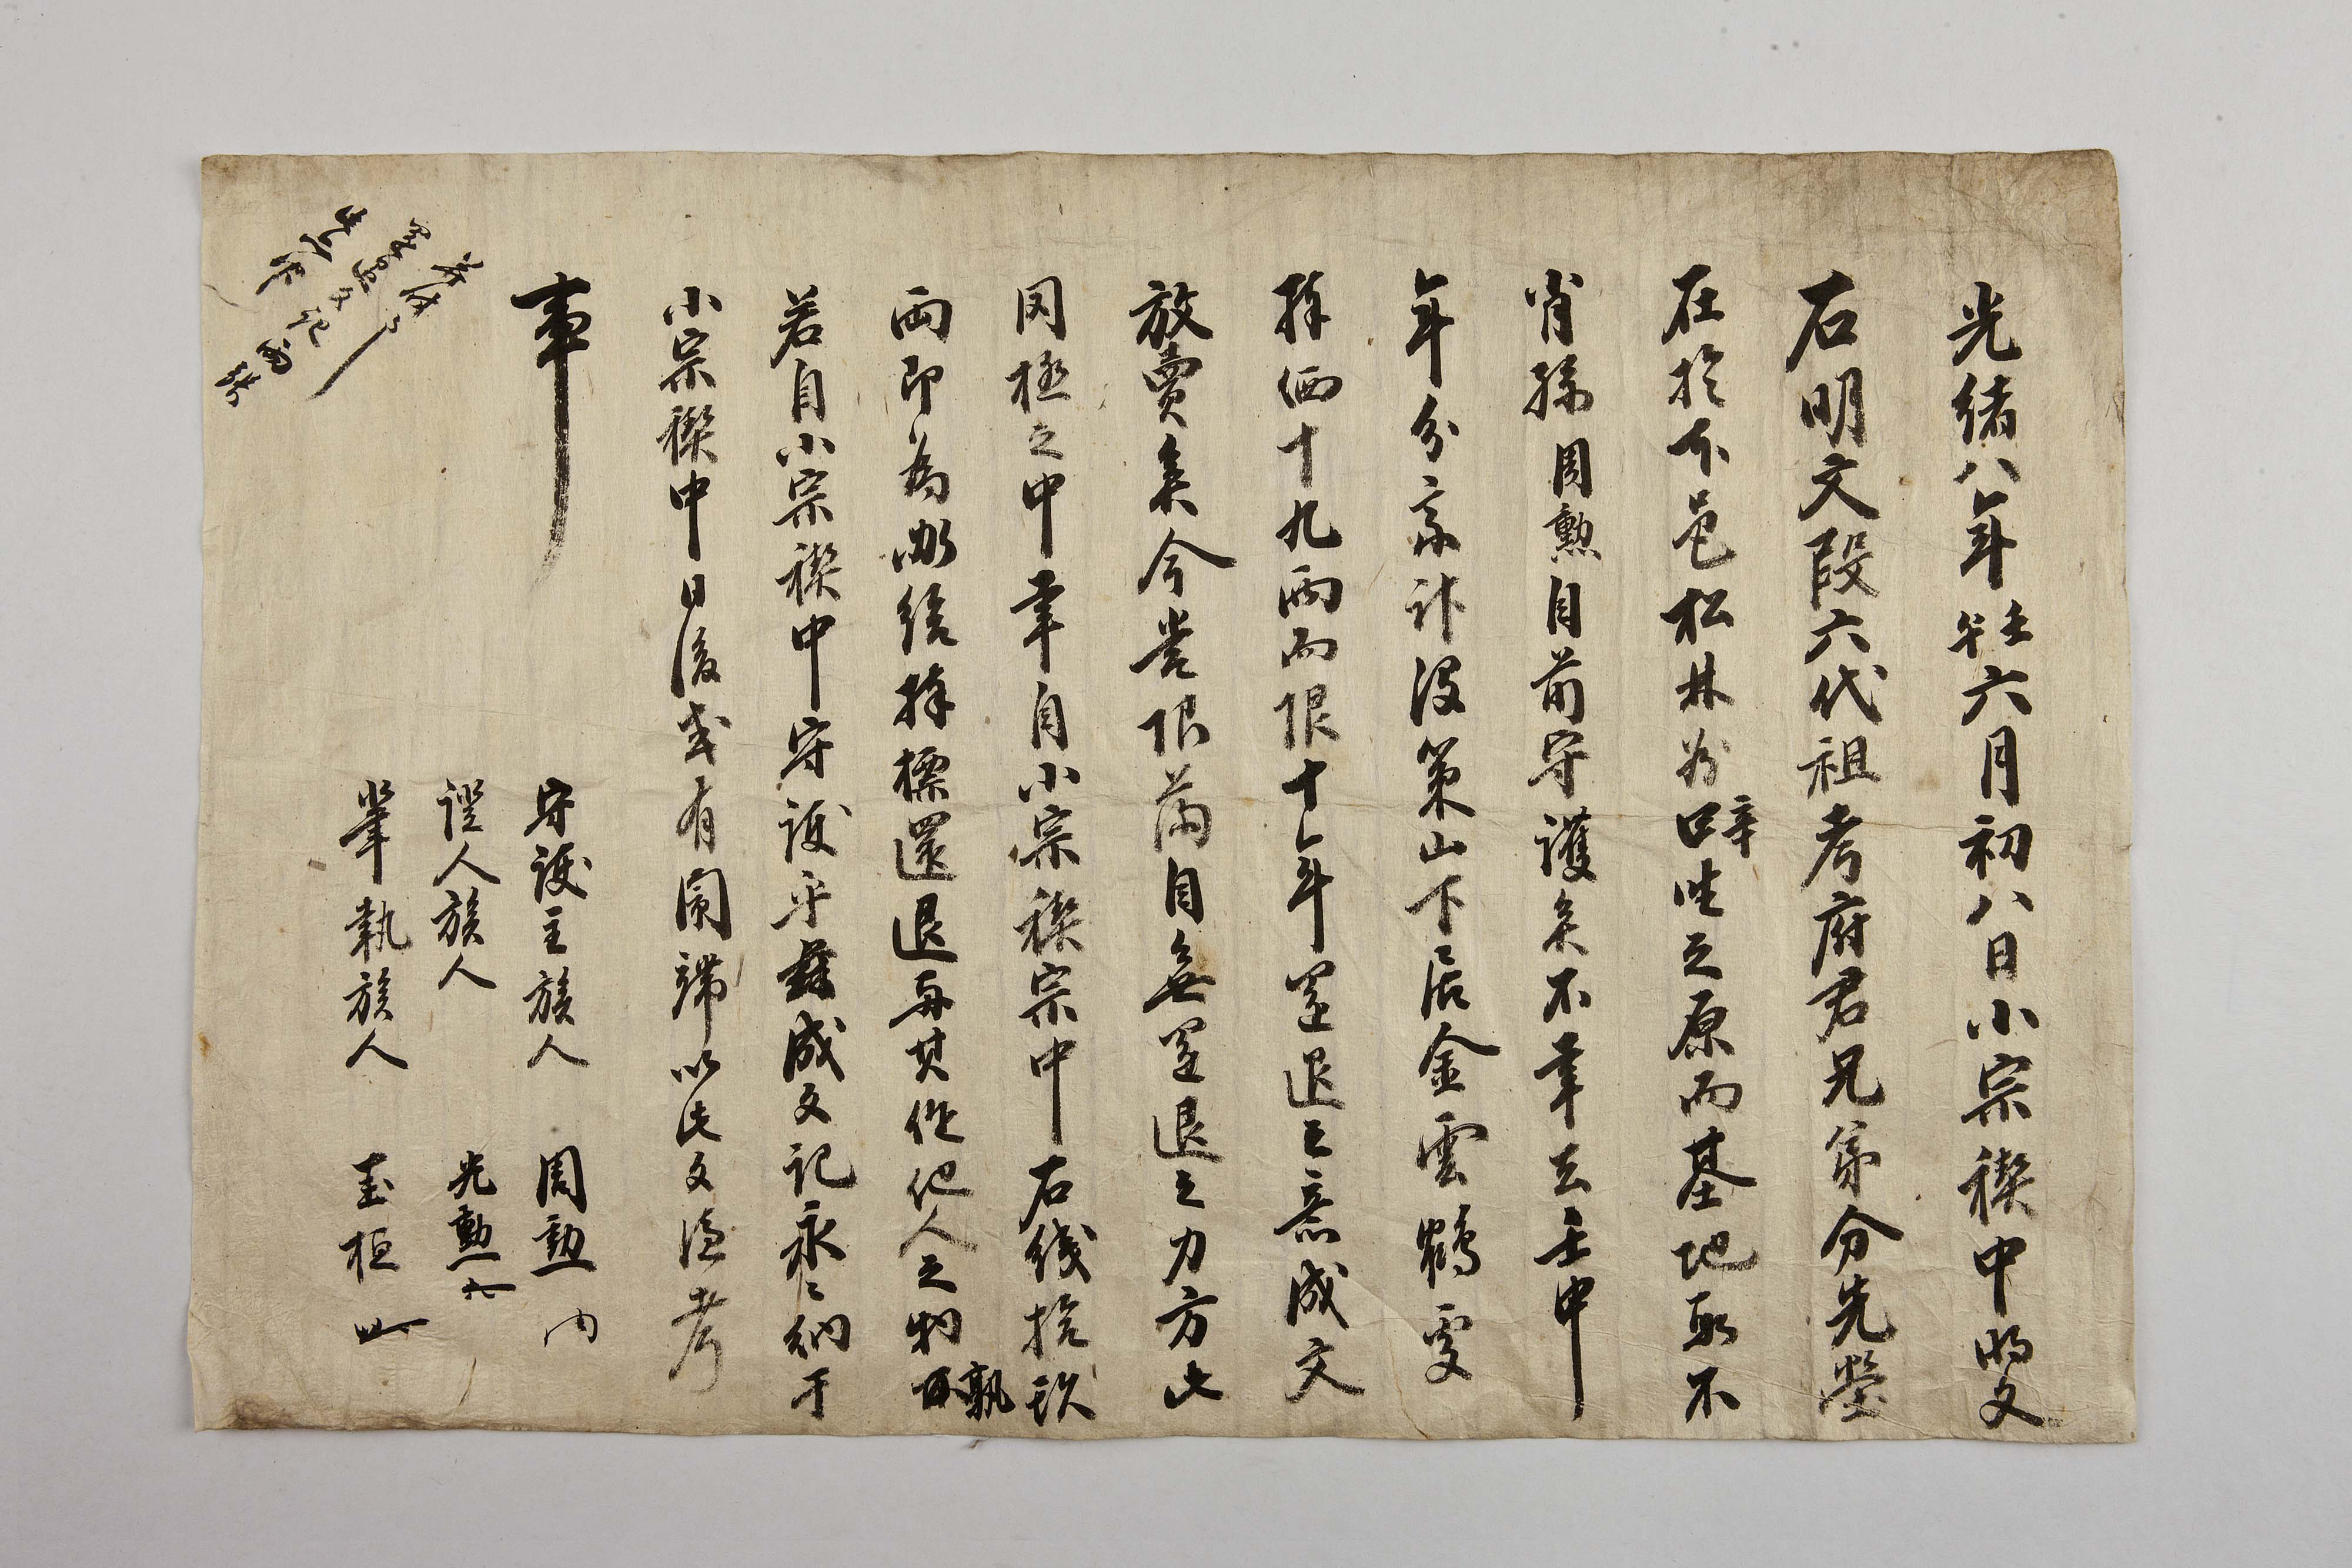 光緖八年壬午六月初八日小宗稧中明文
右明文段六代祖考府君兄弟分先塋
在於本邑松林 辛坐之原而基地
不肖孫周勳自前守護矣不幸去壬申
年分 山下居金雲鶴處
捧価十九兩而限十年還退之意成文
放賣矣今當限滿自無還退之力方此
罔極之中幸自小宗稧宗中右錢拾玖
兩卽爲 給捧標還退與其作他人之物孰
若自小宗稧中守護乎 成文記永永納于
小宗稧中日後或有 端以此文憑考
事
守護主族人 周勳
證人族人 光勳
筆執族人